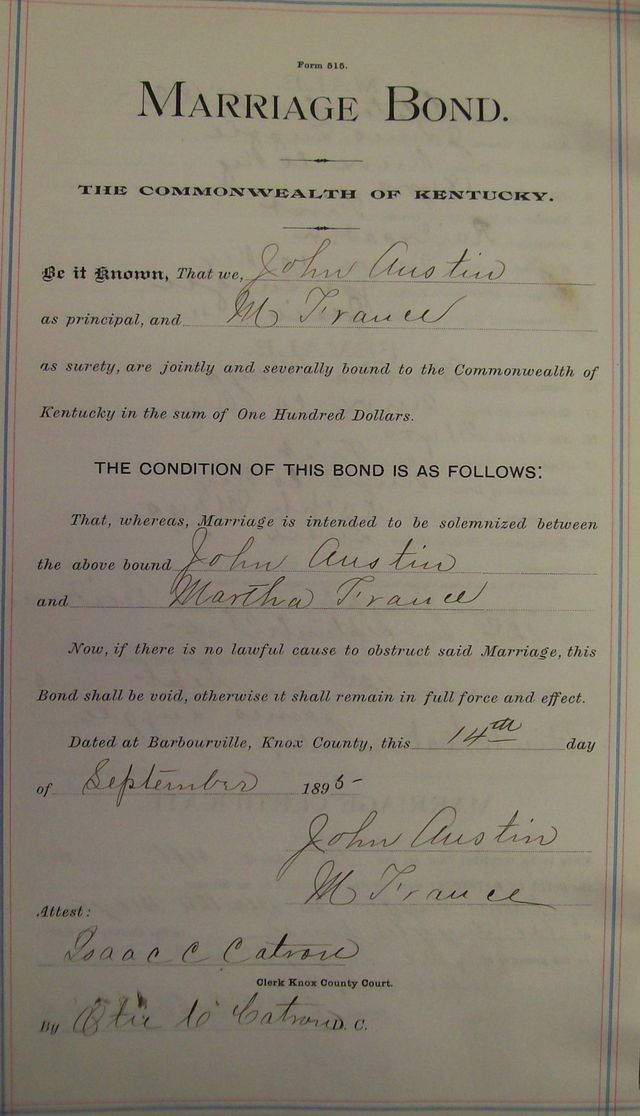 Form 515.
MARRIAGE BOND.
THE COMMONWEALTH OF KENTUCKY.
Be it Known, That we, John Austin
as principal, and M France
as surety, are jointly and severally bound to the Commonwealth of
Kentucky in the sum of One Hundred Dollars.
THE CONDITION OF THIS BOND IS AS FOLLOWS:
That, whereas, Marriage is intended to be solemnized between
the above bound John Austin
and Martha France
Now, if there is no lawful cause to obstruct said Marriage, this
Bond shall be void, otherwise it shall remain in full force and effect.
Dated at Barbourville, Knox County, this 14th day
of September 1895
John Austin
M France
Attest:
Isaac C Catron
Clerk Knox County Court.
By Catron D. C.